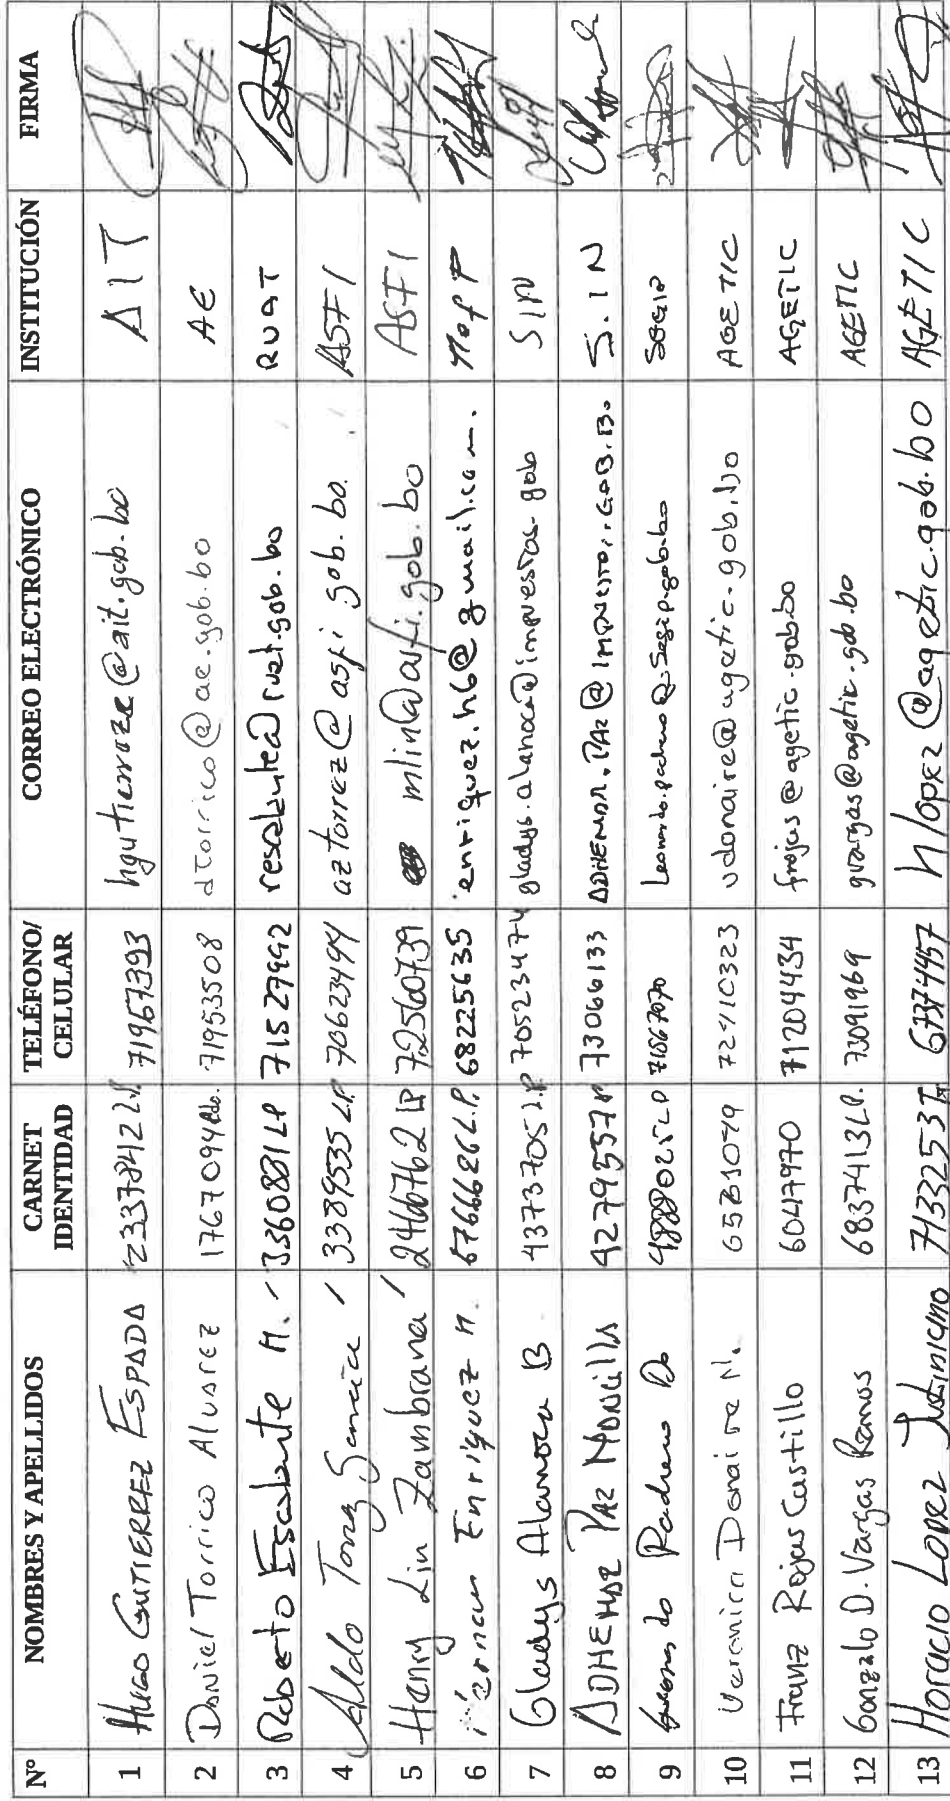 Nº NOMBRES Y APELLIDOS CARNET IDENTIDAD TELÉFONO/ CELULAR CORREO ELECTRÓNICO INSTITUCIÓN FIRMA
1 HUGO GUTIERREZ ESPADA 2337842 L.P. 71967393 hgutierrez@ait.gob.bo AIT
2 Daniel Torrico Alvarez 1767094 71953508 dtorrico@ae.gob.bo AE
3 Roberto Escalante A. 3360881 LP 71527992 rescalante@ruat.gob.bo RUAT
4 Aldo Torrez 3389535 LP 70623494 aztorrez@asfi.gob.bo. ASFI
5 Henry Lin Zambrana 2460762 LP 72560739 mlin@asfi.gob.bo ASFI
6 Enriquez H. 6766626 L.P. 68225635 enriquez.h6@gmail.com.
7 Gladys Alanoca B 4373705 L.P 70523474 gladys.alanoca@impuestos.gob SIN
8 ADHEMAR PAZ MONCILLA 4279557 73066133 ADHEMAR.PAZ@ S.I.N
9 Pacheco 71567070
10 Veronica Donaire M. 72410323 vdonaire@agetic.gob.bo AGETIC
11 Franz Rojas Castillo 6047970 71204434 frojas@agetic.gob.bo AGETIC
12 Gonzalo D. Vargas Ramos 6837413 LP. 73091969 gvargas@agetic.gob.bo AGETIC
13 Horacio Lopez Justiniano 7133253 67374457 hlopez@agetic.gob.bo AGETIC